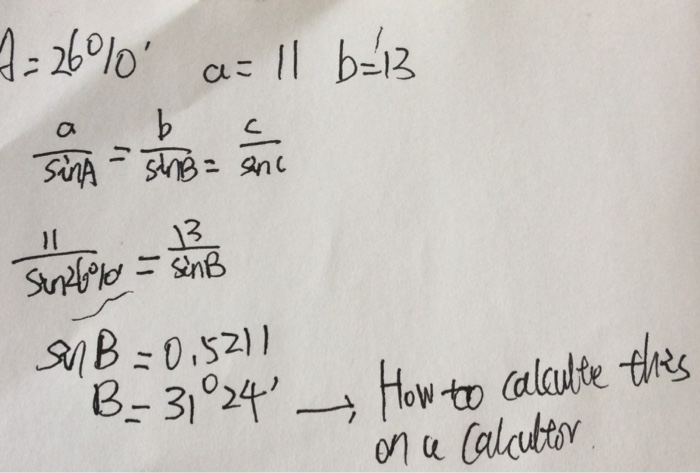 A = 26°10' a = 11 b = 13
a/sinA = b/sinB = c/sinC
11/sin26°10' = 13/sinB
sinB = 0.5211
B = 31°24' → How to calculte this
on a calcultor.